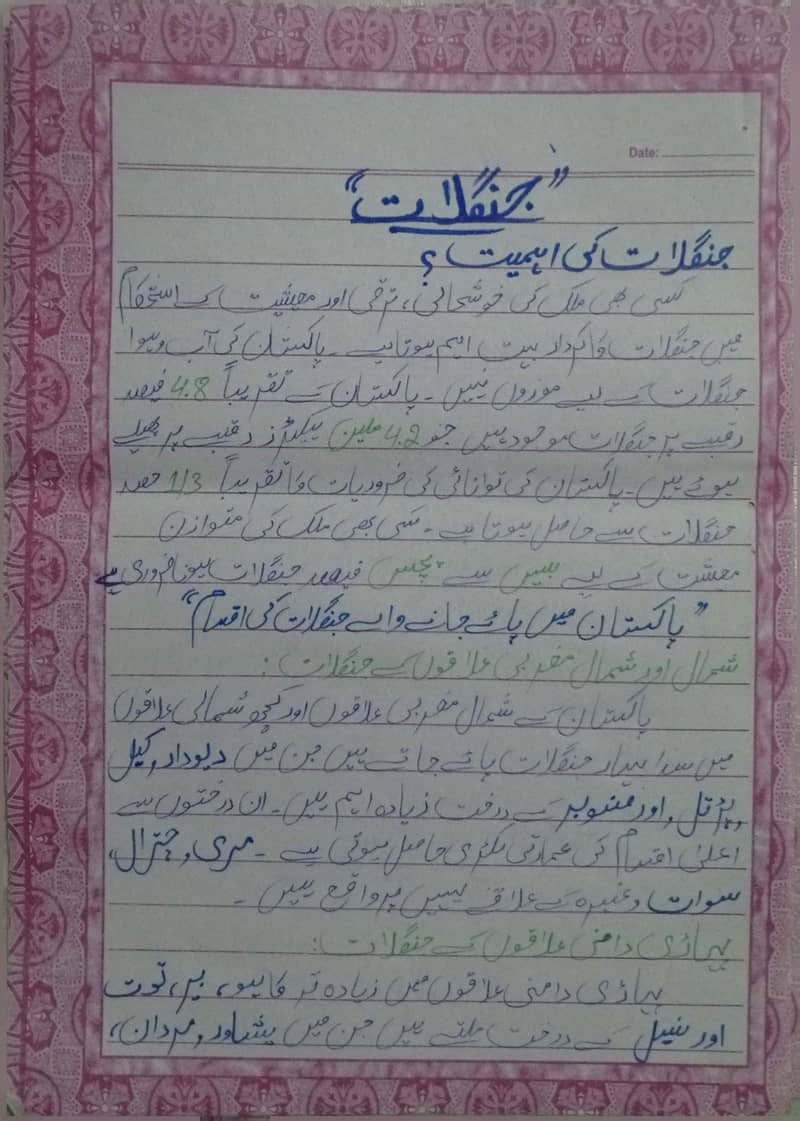 Date:
"جنگلات"
جنگلات کی اہمیت؟
کسی بھی ملک کی خوشحالی، ترقی اور معیشیت کے استحکام
میں جنگلات کا کردار بہت اہم ہوتا ہے۔ پاکستان کی آب و ہوا
جنگلات کے لیے موزوں نہیں۔ پاکستان کے تقریباً 4.8 فیصد
رقبے پر جنگلات موجود ہیں جو 4.2 ملین ہیکٹرز رقبے پر پھیلے
ہوئے ہیں۔ پاکستان کی توانائی کی ضروریات کا تقریباً 1/3 حصہ
جنگلات سے حاصل ہوتا ہے۔ کسی بھی ملک کی متوازن
معشت کے لیے بیس سے پچیس فیصد جنگلات ہونا ضروری ہے
"پاکستان میں پائے جانے والے جنگلات کی اقسام"
شمال اور شمال مغربی علاقوں کے جنگلات:
پاکستان کے شمال مغربی علاقوں اور کچھ شمالی علاقوں
میں سدا بہار جنگلات پائے جاتے ہیں جن میں دیودار، کیل
پڑتل، اور صنوبر کے درخت زیادہ اہم ہیں۔ ان درختوں سے
اعلیٰ اقسام کی عمارتی لکڑی حاصل ہوتی ہے۔ مری، چترال،
سوات وغیرہ کے علاقے یہیں پر واقع ہیں۔
پہاڑی دامنی علاقوں کے جنگلات:
پہاڑی دامنی علاقوں میں زیادہ تر کاہو، بیر، توت
اور سنبل کے درخت ملتے ہیں جن میں پشاور، مردان،